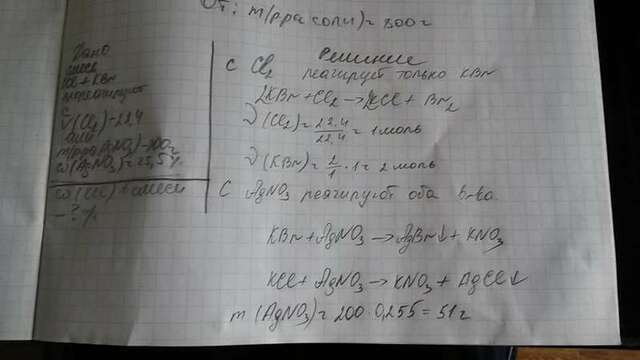 От: m(рра соли)= 800 г
Дано
смеси
KCl + KBr
прореагирует
с
V(Cl2)=22,4
или
m(рра AgNO3)=200г
ω(AgNO3)=25,5%
ω(KCl) в смеси
-?%
Решение
С Cl2 реагирует только KBr
2KBr + Cl2 → 2KCl + Br2
ν(Cl2)= 22.4/22,4 = 1 моль
ν(KBr)= 2/1 · 1 = 2 моль
С AgNO3 реагируют оба в-ва.
KBr + AgNO3 → AgBr↓ + KNO3
KCl + AgNO3 → KNO3 + AgCl↓
m(AgNO3)= 200 · 0,255 = 51 г